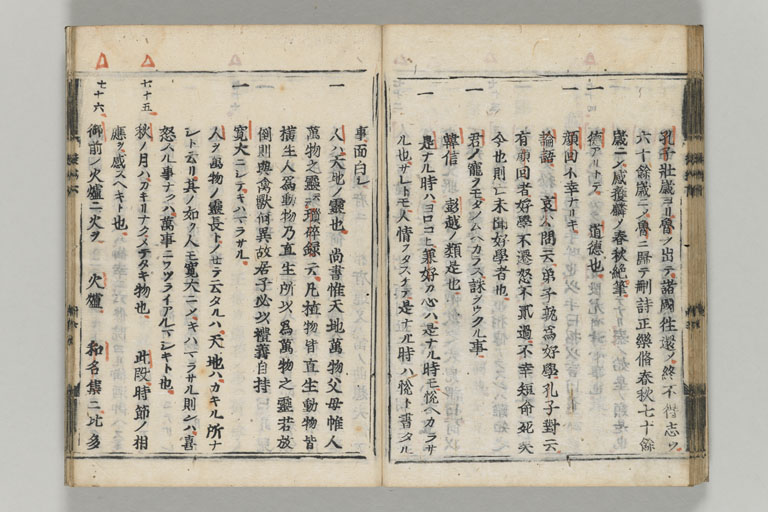 孔子壯歳ヨリ魯ノ出テ諸國徃還ノ終不得志ソ
六十餘歳ニメ魯ニ歸テ刪詩正樂脩春秋七十餘
歳ニメ感獲麟ノ春秋絶筆
一 徳アルトテ 道徳也
一 顔回不幸ナリキ
論語 哀公問云弟子孰爲好學孔子對云
有顔回者好學不遷怒不貳過不幸短命死矣
今也則亡未聞好學者也
一 君ノ寵ヲモタノムヘカラス誅ヲウクル事
韓信 彭越ノ類是也
一 是ナル時ハヨロコヒ 兼好カ心ハ是ナル時モ悦ヘカラサ
ル也サレトモ人情ヲタスケテ是ナル時ハ悦ト書タル
事面白シ
一 人ハ天地ノ靈也 尚書惟天地萬物父母惟人
萬物之靈 瑣碎録云凡植物皆直生動物皆
横生人爲動物乃直生所以爲萬物之靈若放
倒則與禽獸何異故君子必以禮義自持
一 寛大ニシテキハマラサル
人ヲ萬物ノ靈長トノせテ云タルハ天地ハカキル所ナ
シト云リ其ノ如ク人モ寛大ニメキハマラサル則ンハ喜
怒スル事ナクハ萬事ニワツライアルマシキト也
七十五 秋ノ月ハカキリナクメテタキ物也 此段時節ノ相
應ヲ感スヘキト也
七十六 御前ノ火爐ニ火ヲ 火爐 和名集ニ比多